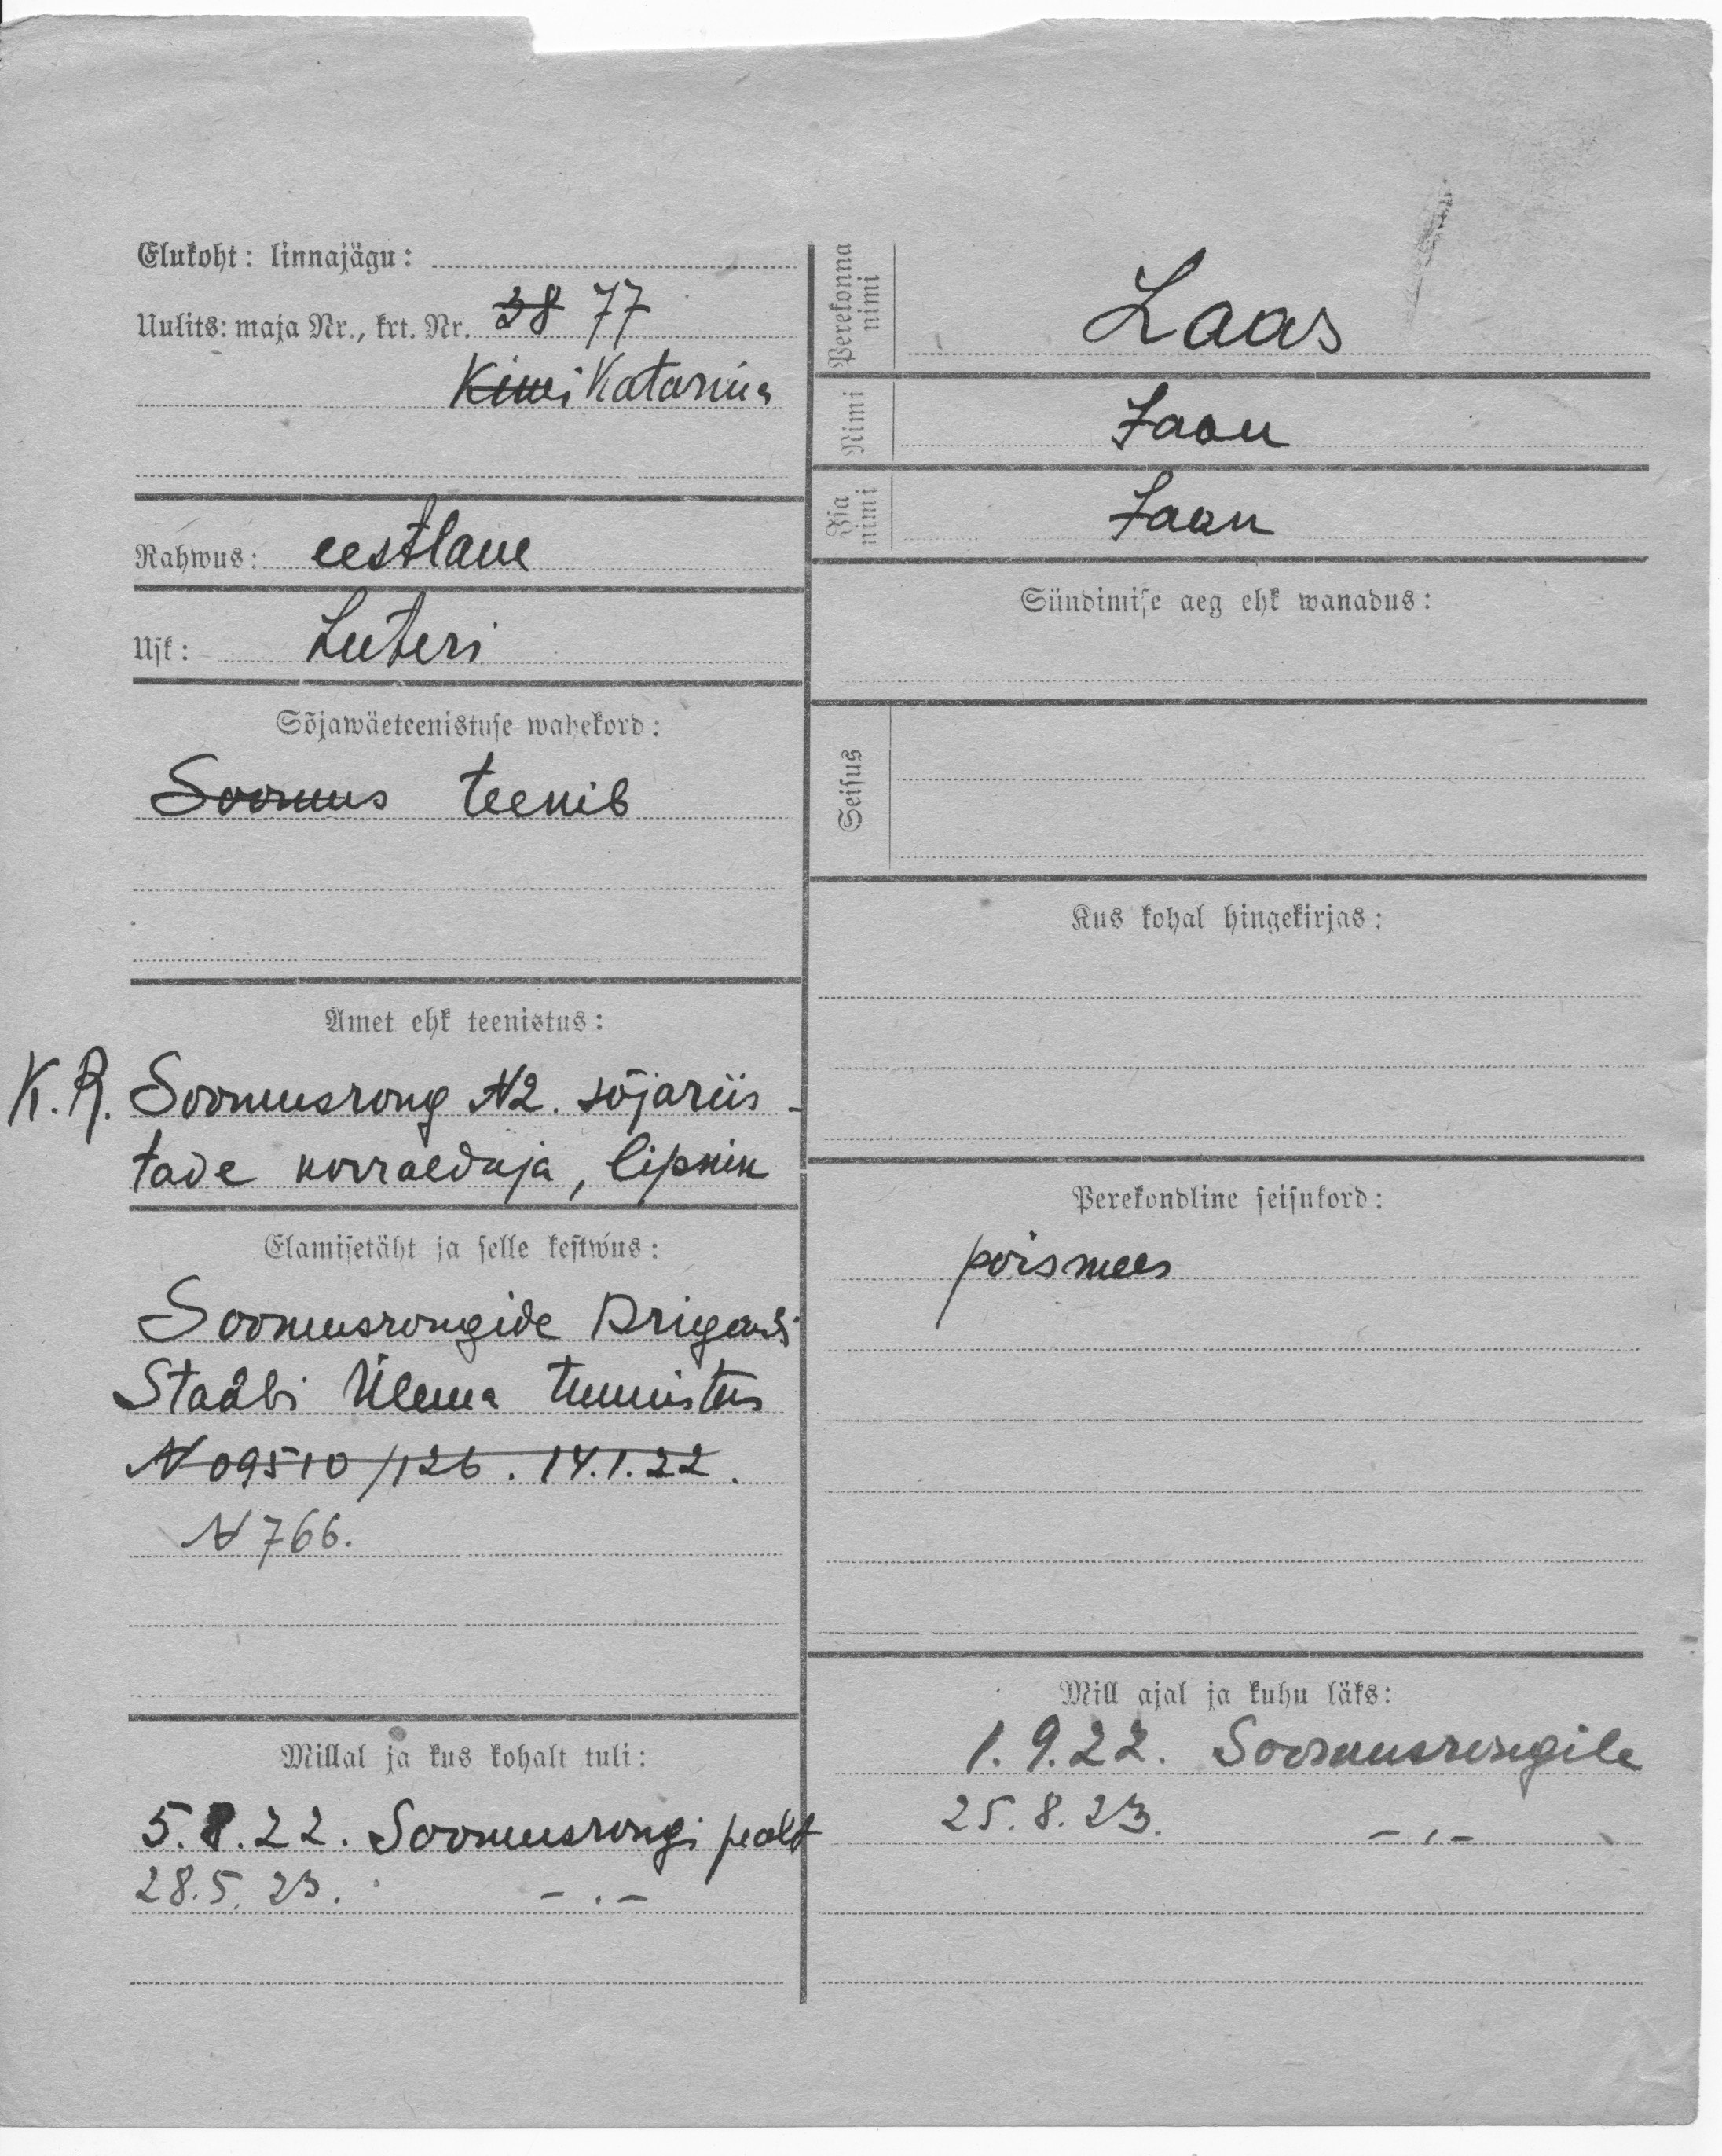 Elukoht: linnajägu:
Uulits: maja Nr., krt. Nr. 38 77
Kivi Katariina
Rahwus: eestlane
Usk: Luteri
Sõjawäeteenistuse wahekord:
Soomus teenib
Amet ehk teenistus:
K. R. Soomusrong N2. sõjariis-
tade korraldaja, lipnik
Elamisetäht ja selle kestwus:
Soomusrongide Brigaadi
Staabi Ülema tunnistus
N 09510/126. 14.1.22.
N 766.
Millal ja kus kohalt tuli:
5.8.22. Soomusrongi pealt
28.5.23. -.-
Perekonna
nimi
Laas
Nimi
Jaan
Isa
nimi
Jaan
Sündimise aeg ehk wanadus:
Seisus
Kus kohal hingekirjas:
Perekondline seisukord:
poismees
Mill ajal ja kuhu läks:
1.9.22. Soomusrongile
25.8.23. -,-